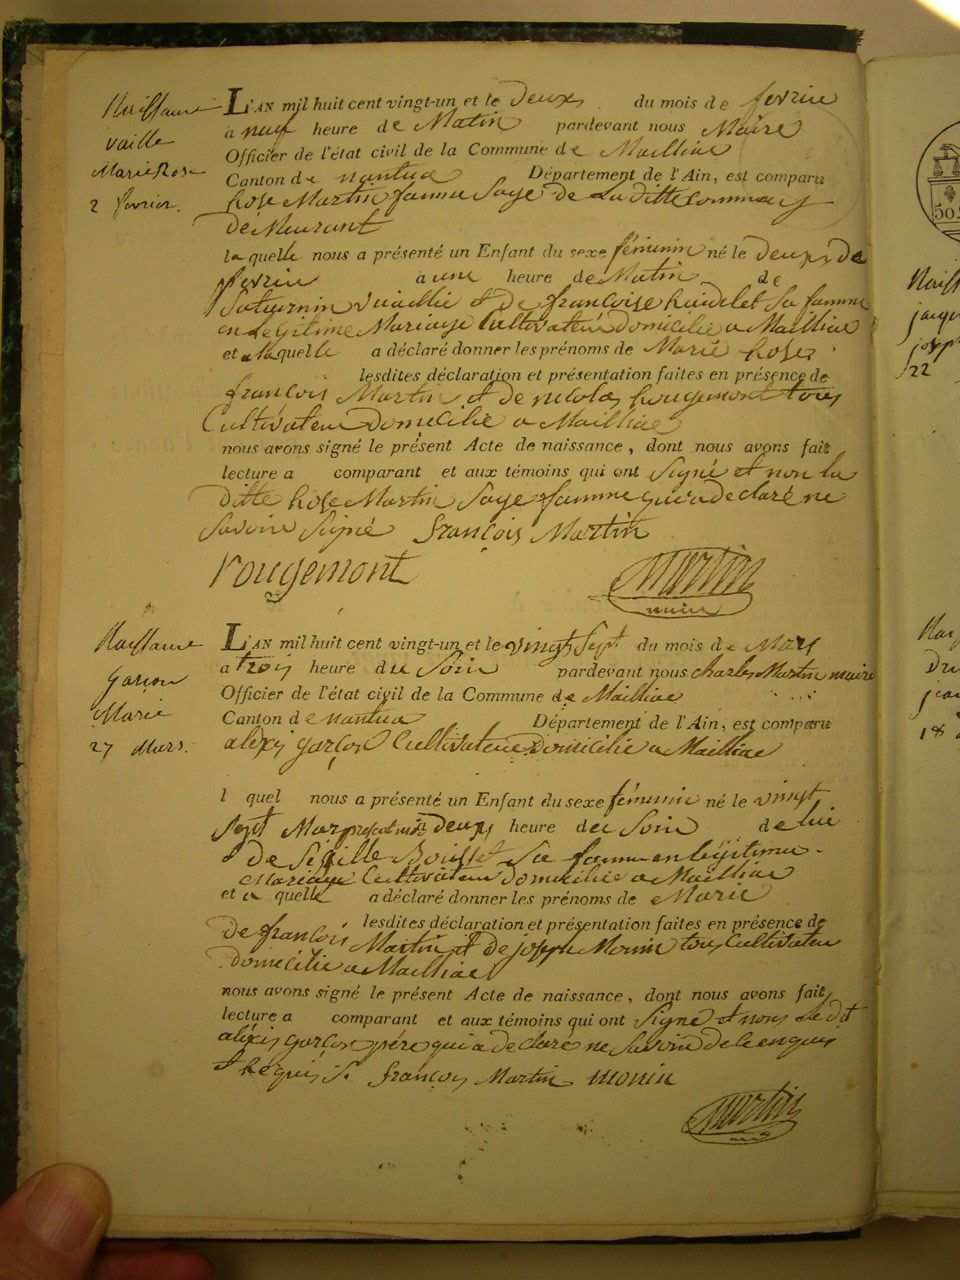 Naissance
vaille
Marie Rose
2 fevrier.
L'AN mil huit cent vingt-un et le deux du mois de fevrie
a neuf heure de Matin pardevant nous Maire
Officier de l'état civil de la Commune de Mailliac
Canton de nantua Département de l'Ain, est comparu
Rose Martin famme Sage de La ditte Commune
De
la quelle nous a présenté un Enfant du sexe féminin né le deux de
fevrie a une heure de Matin de
Saturnin vuaillie et De françoise Sa famme
en Legitime Mariage Cultivateur Domicilie a Mailliac
et a laquelle a déclaré donner les prénoms de Marie Rose
lesdites déclaration et présentation faites en présence de
françois Martin et de nicolas Rougemont tous
Cultivateur Domicilie a Mailliac
nous avons signé le présent Acte de naissance, dont nous avons fait
lecture a comparant et aux témoins qui ont Signé et non la
Ditte Rose Martin Sage famme qui a declaré ne
Savoire Signé françois Martin
rougemont Martin
maire
Naissance
Garçon
Marie
27 Mars.
L'AN mil huit cent vingt-un et le vingt Sept du mois de Mars
a trois heure du Soir pardevant nous charles Martin maire
Officier de l'état civil de la Commune de Mailliac
Canton de nantua Département de l'Ain, est comparu
aléxis garçon Cultivateur Domicilie a Mailliac
l quel nous a présenté un Enfant du sexe féminin né le vingt
Sept Mars deux heure du Soir de lui
et De Boisset Sa famme en legitime
Mariage Cultivateur Domicilie a Mailliac
et a quelle a déclaré donner les prénoms de Marie
lesdites déclaration et présentation faites en présence de
De françois Martin et De joseph Monin tous Cultivateur
Domicilie a Mailliac
nous avons signé le présent Acte de naissance, dont nous avons fait
lecture a comparant et aux témoins qui ont Signé et nons Le dit
aléxis garçon pére qui a declaré ne Savoir De ce enquis
et Requis. françois Martin monin
Martin